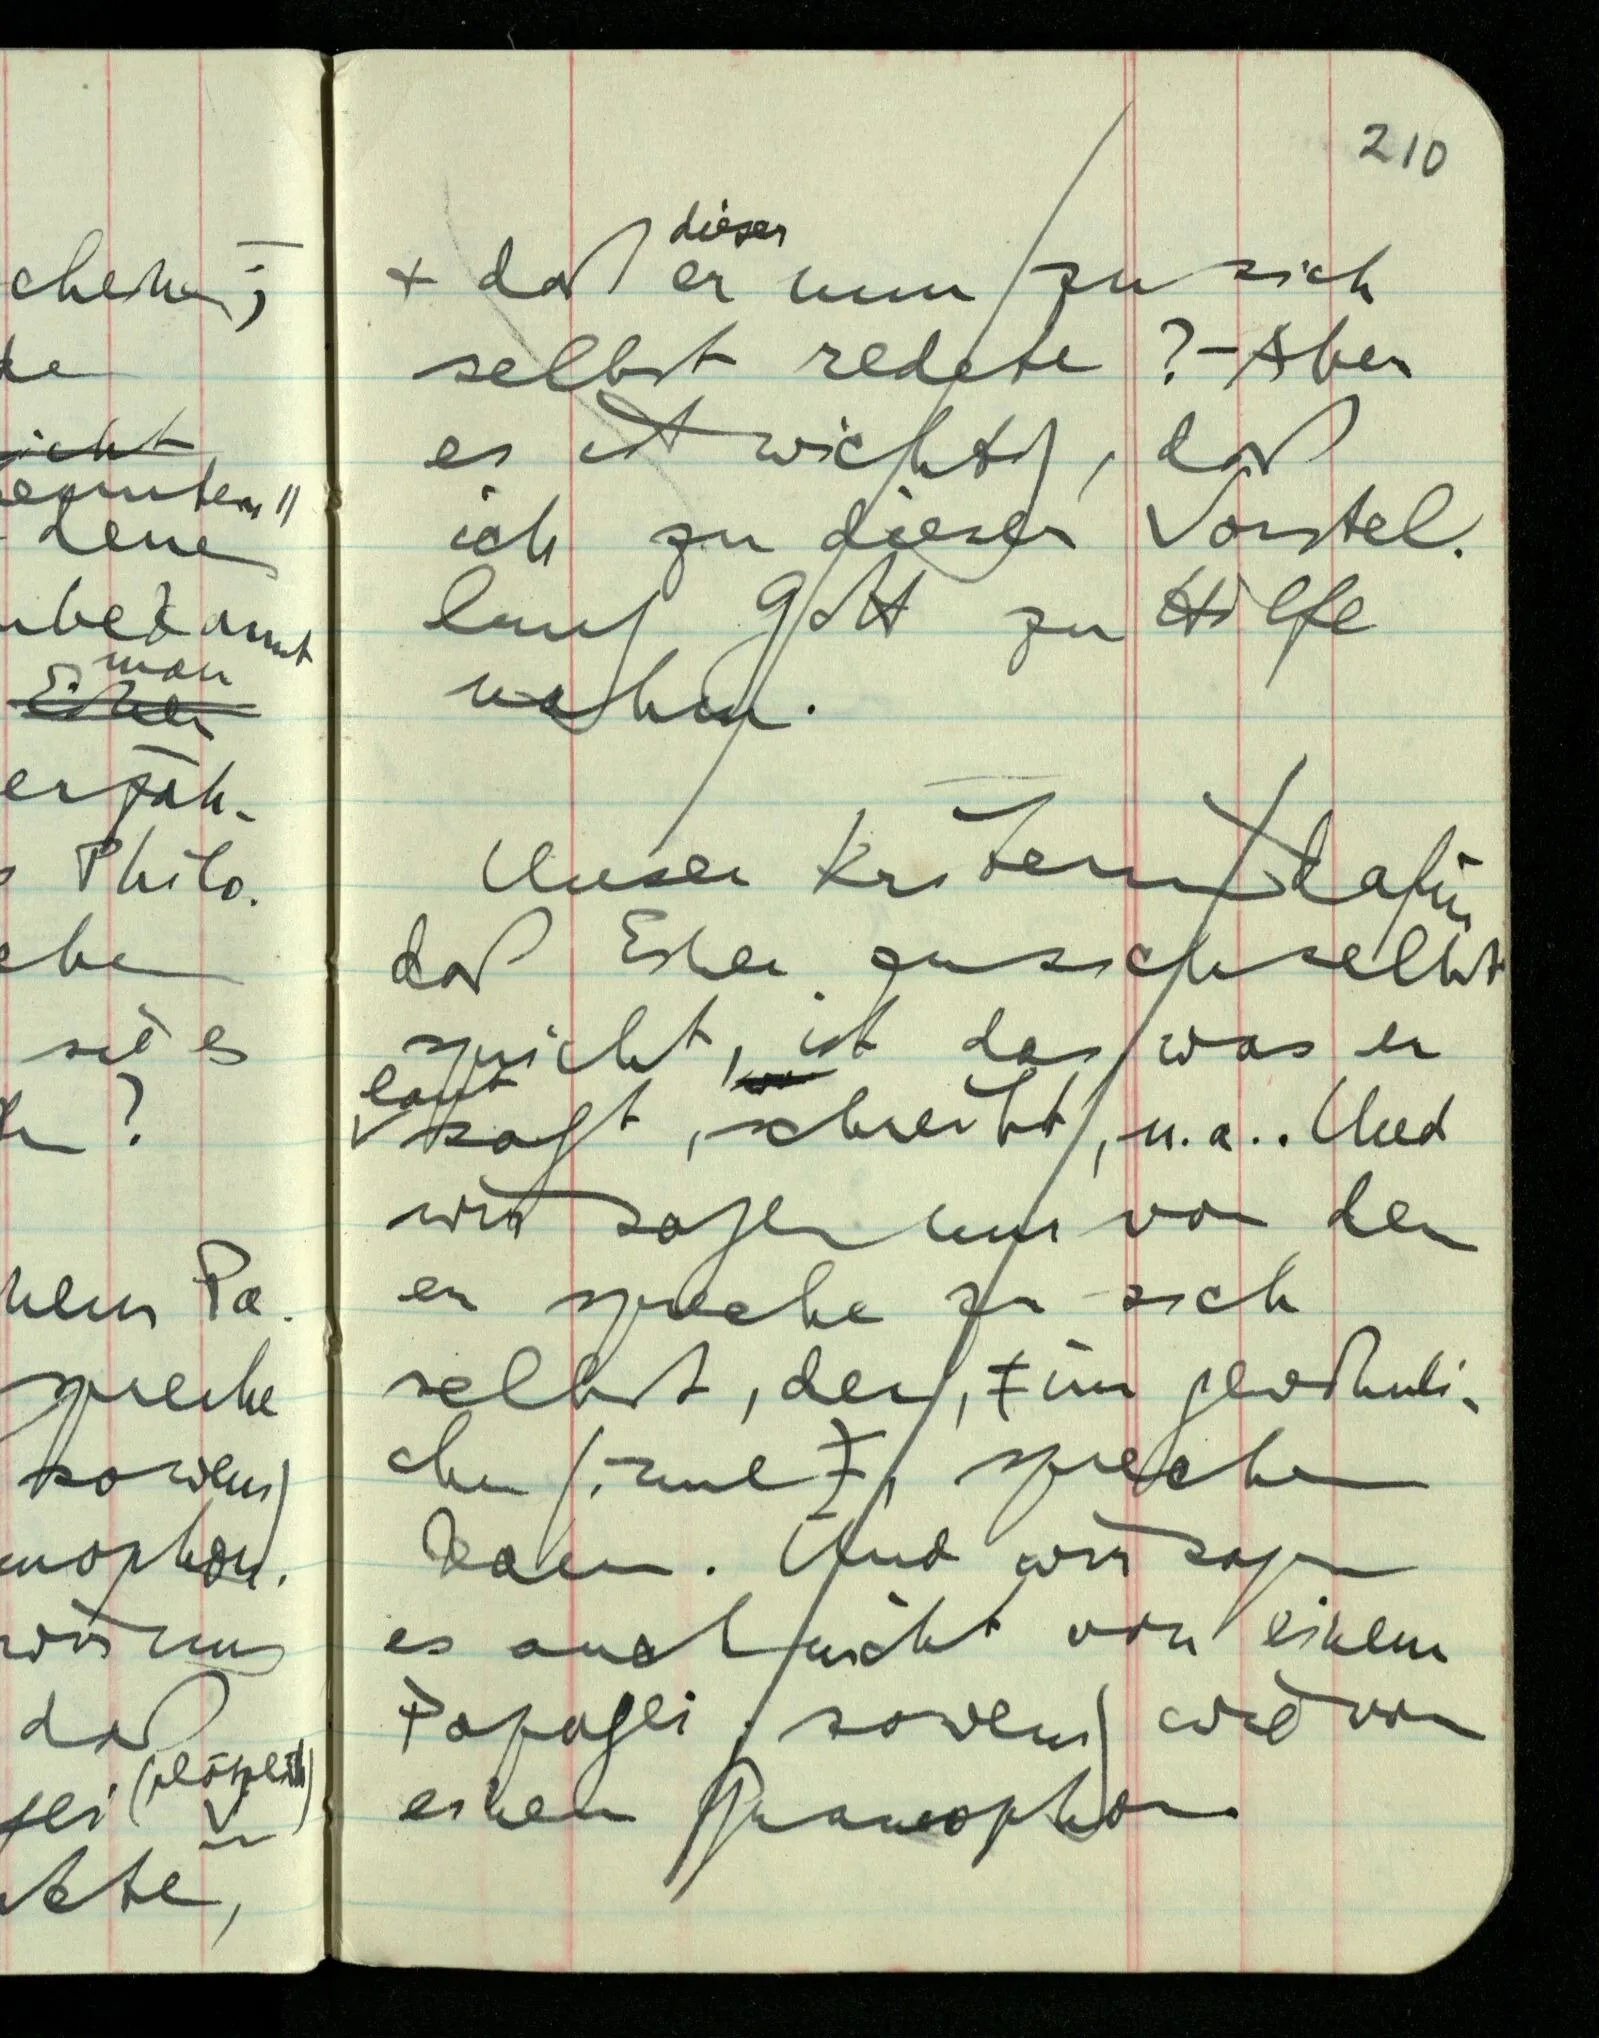 cheinen;
de
nicht
denen
unbekannt
man
Einer
erzäh-
s Philo-
chen
sei es
n?
nem Pa-
spreche
sowenig
mophon.
wir uns
daß
gei (plötzlich)
in
ckte,
210
dieser
+ daß er nun zu sich
selbst redete? – Aber
es ist wichtig, daß
ich zu dieser Vorstel-
lung Gott zu Hilfe
nehme.
Unser Kriterium dafür
daß Einer zu sich selbst
spricht, ist das was er
laut
sagt, schreibt, u.a.. Und
wir sagen nur von dem
er spreche zu sich
selbst, der, im gewöhnli-
chen Sinne, sprechen
kann. Und wir sagen
es auch nicht von einem
Papagei; sowenig wie von
einem Gramophon.